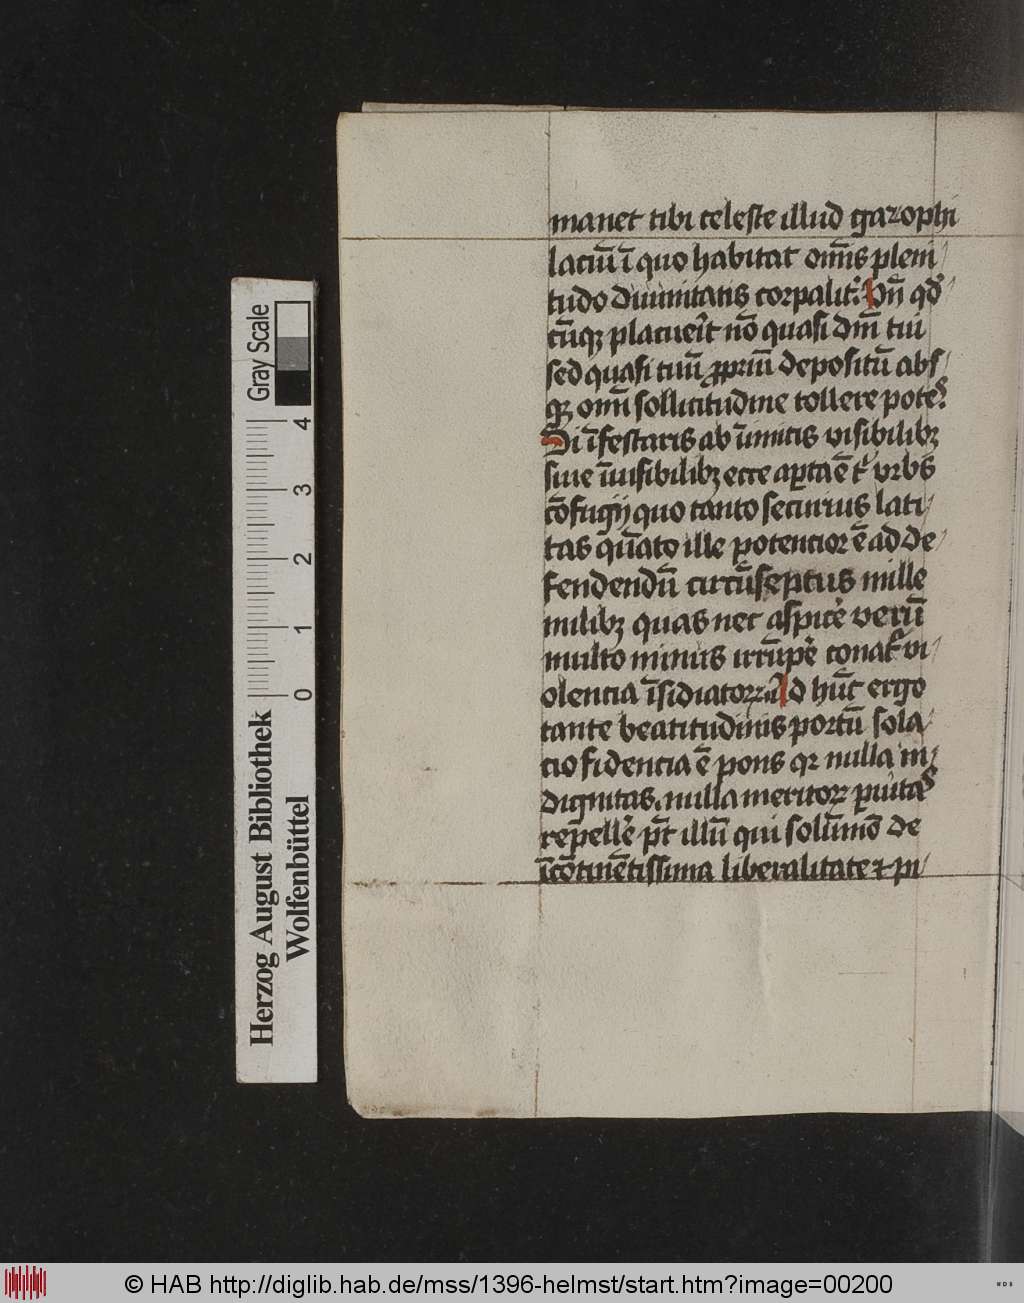 manet tibi celeste illud gazophi
laciū ī quo habitat om̄is pleni
tudo diuinitatis corpalit᷑. Vn̄ qd᷎
cūqꝫ placuer̄it nō quasi dm̄ tui
sed quasi tuū ꝓpriū depositū abs
qꝫ omī sollicitudine tollere potes᷑
Si īfestaris ab īimicis visibilibꝫ
siue īuisibilibꝫ ecce aꝑta ē t᷑ vrbs
cōfugij quo tanto securius lati
tas quāto ille potencior ē ad de
fendendū circūseptus mille
milibꝫ quas nec aspice᷑ verū
multo minus irrūpe᷑ conat᷑ vi
olencia īsidiatoꝝ. Ad hūc ergo
tante beatitudinis portū sola
cio fidencia ē pons qꝛ nulla in
dignitas. nulla meritoꝝ ꝑuitas᷑
repelle᷑ pōt illū qui solūmō de
īcōtinētissima liberalitate ⁊ pi
Herzog August Bibliothek
Wolfenbüttel
Gray Scale
0 1 2 3 4
© HAB http://diglib.hab.de/mss/1396-helmst/start.htm?image=00200
WDB